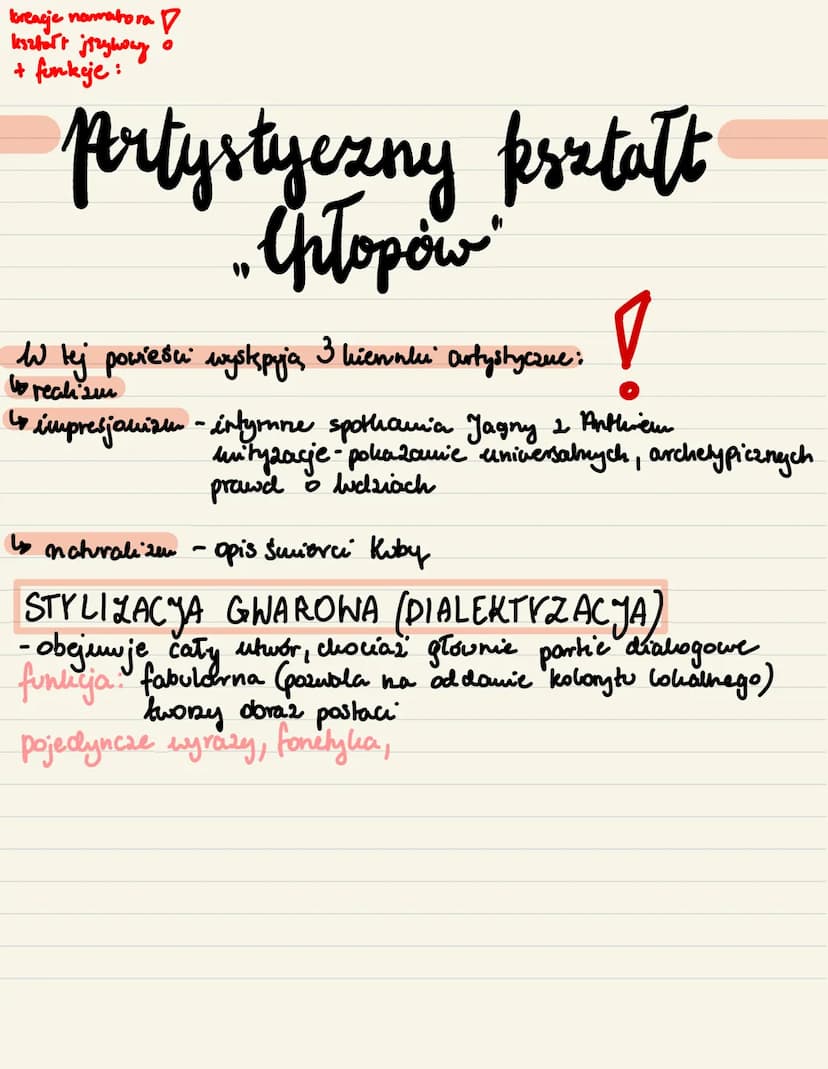 kreacje narratora !
kształt językowy
+ funkcje:
Artystyczny kształt
„Chłopów"
W tej powieści występują 3 kierunki artystyczne: !
↳ realizm
↳ impresjonizm - intymne spotkania Jagny z Antkiem
mityzacje - pokazanie uniwersalnych, archetypicznych
prawd o ludziach
↳ naturalizm - opis śmierci Kuby
STYLIZACJA GWAROWA (DIALEKTYZACJA)
- obejmuje cały utwór, chociaż głównie partie dialogowe
funkcja: fabularna (pozwala na oddanie kolorytu lokalnego)
tworzy obraz postaci
pojedyncze wyrazy, fonetyka,